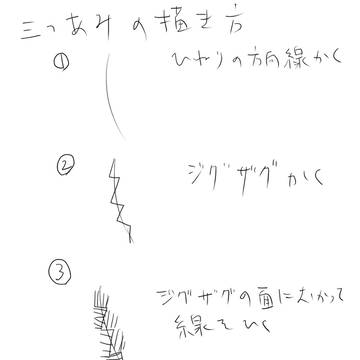 三つあみの描き方
① ひねりの方向線かく
② ジグザグかく
③ ジグザグの面にむかって
線をひく